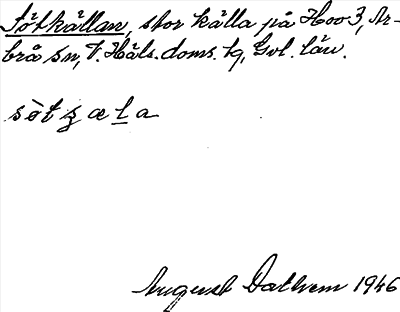 Sötkällan, stor källa på Hoo 3, Ar-
brå sn, V. Häls. doms. hg, Gvl. län.
söt z æ l a
August Dathem 1946